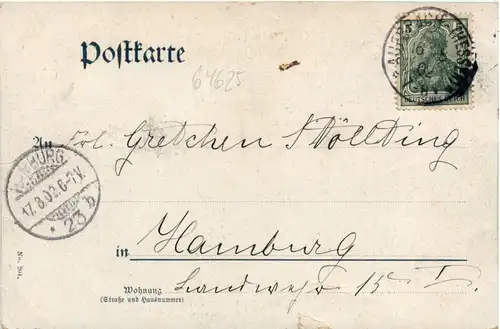 Postkarte
64625
AUERBACH (HESSEN)
DEUTSCHES REICH
An Frl. Gretchen Nöllting
BURG
17.8.0 6-7V.
* 23 b
in Hamburg
Wohnung
(Straße und Hausnummer)
Landwehr 15 I.
No. 204.